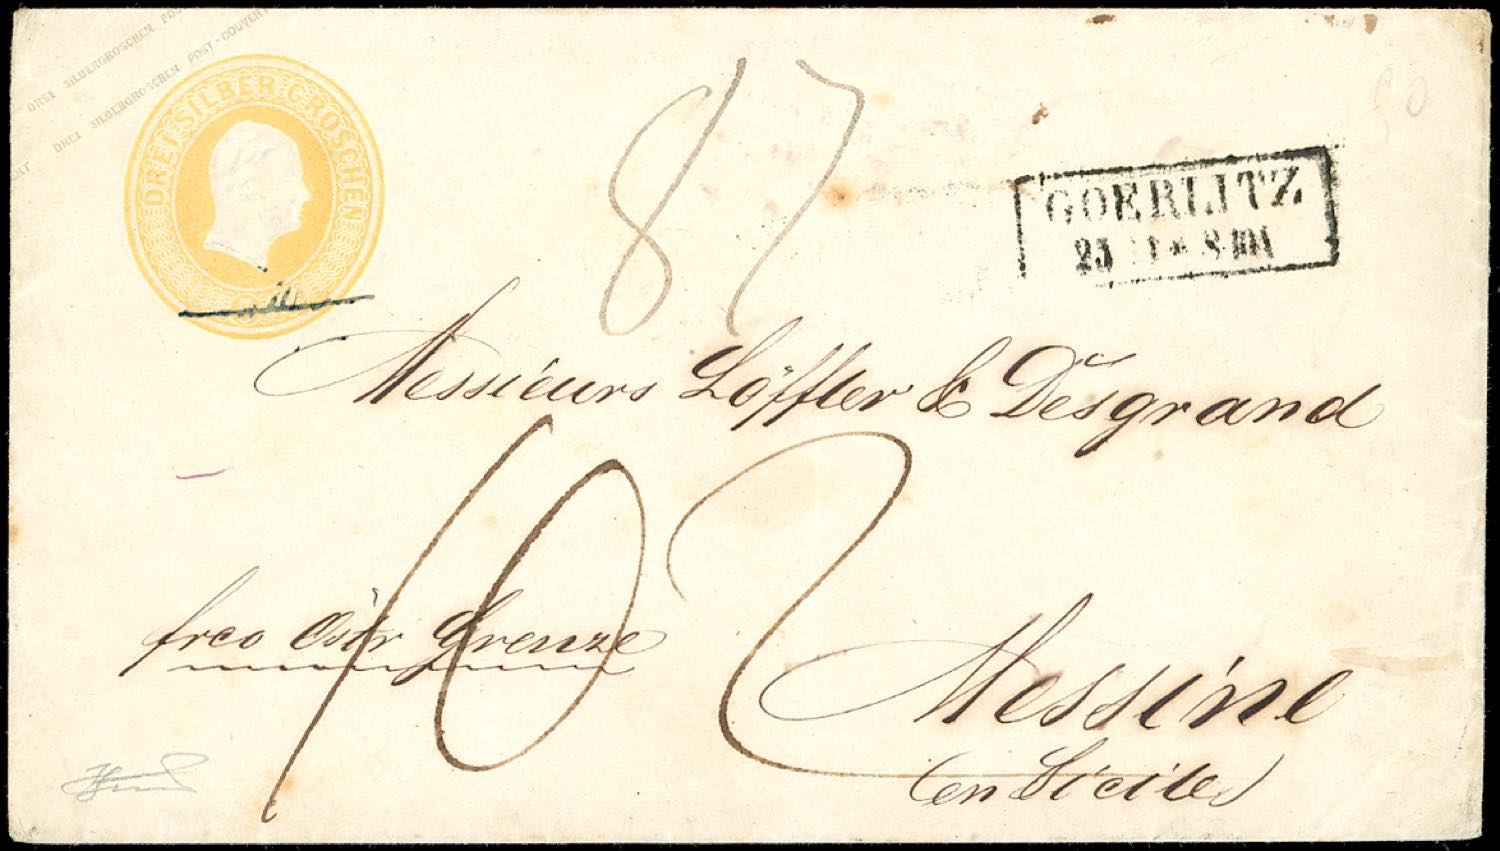 DREI SILBERGROSCHEN POST
DREI SILBERGROSCHEN POST-COUVERT
DREI SILBER GROSCHEN
87
GOERLITZ
25 11 * 8-10
Messieurs Löffler & Desgrand
102
frco Östr Grenze
Messine
(en Sicile)